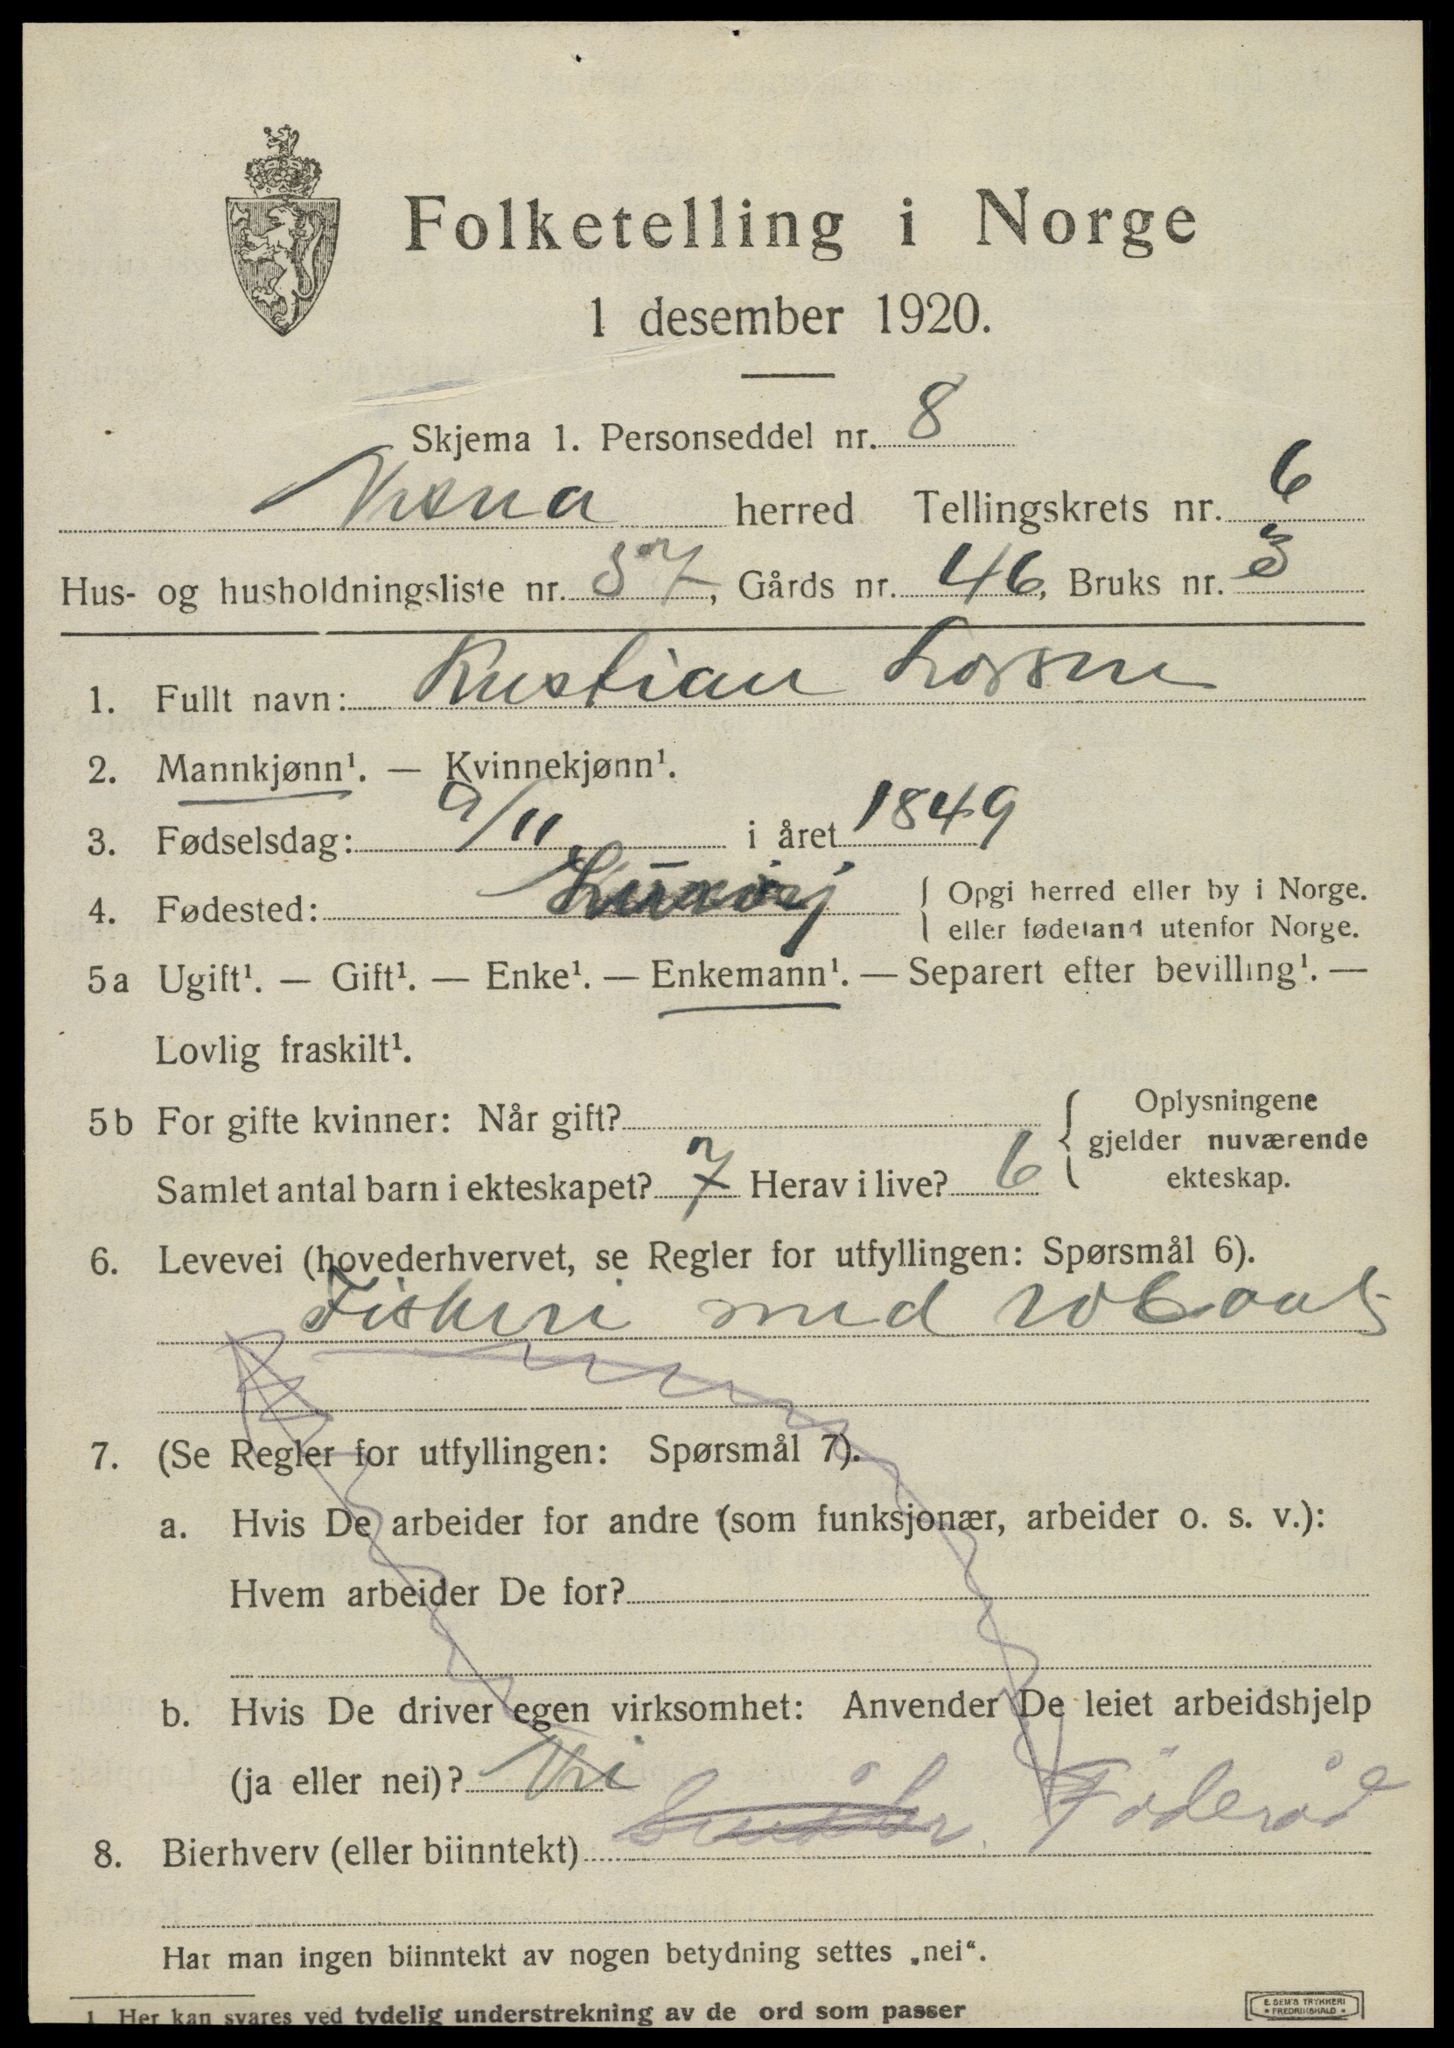 Folketelling i Norge
1 desember 1920.
Skjema 1. Personseddel nr. 8
Nesna herred Tellingskrets nr. 6
Hus- og husholdningsliste nr. 57, Gårds nr. 46, Bruks nr. 3
1. Fullt navn: Kristian Larsen
2. Mannkjønn¹. — Kvinnekjønn¹.
3. Fødselsdag: 9/11 i året 1849
4. Fødested: { Opgi herred eller by i Norge.
eller fødeland utenfor Norge.
5a Ugift¹. — Gift¹. — Enke¹. — Enkemann¹. — Separert efter bevilling¹. —
Lovlig fraskilt¹.
5b For gifte kvinner: Når gift? { Oplysningene
gjelder nuværende
ekteskap.
Samlet antal barn i ekteskapet? 7 Herav i live? 6
6. Levevei (hovederhvervet, se Regler for utfyllingen: Spørsmål 6).
Fiskeri med robaat
7. (Se Regler for utfyllingen: Spørsmål 7).
a. Hvis De arbeider for andre (som funksjonær, arbeider o. s. v.):
Hvem arbeider De for?
b. Hvis De driver egen virksomhet: Anvender De leiet arbeidshjelp
(ja eller nei)? Nei
8. Bierhverv (eller biinntekt) Föderåd
Har man ingen biinntekt av nogen betydning settes „nei“.
1 Her kan svares ved tydelig understrekning av de ord som passer
E. SEM'S TRYKKERI
FREDRIKSHALD